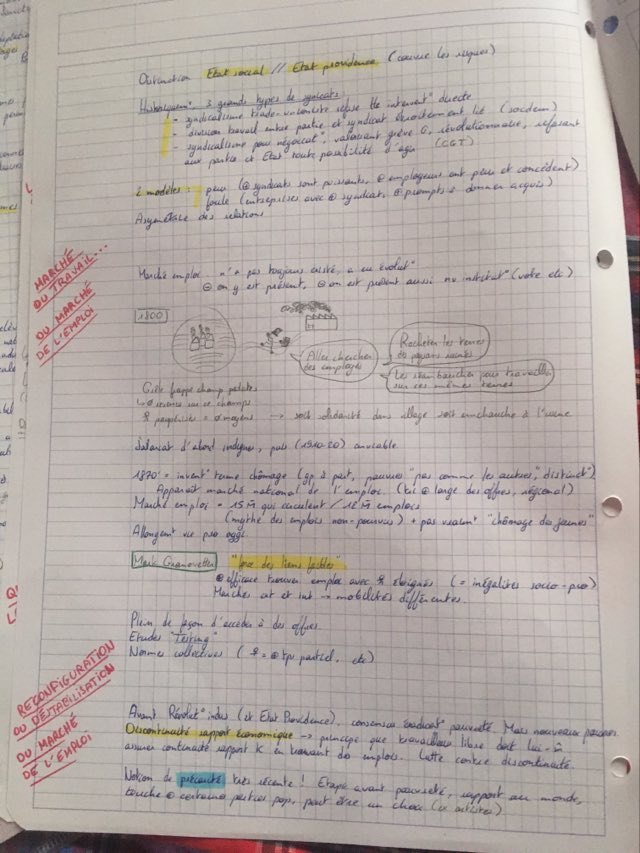 Distinction Etat social // Etat providence (couvre les risques)
Historiquemt 3 grands types de syndicats
- syndicalisme trade-unioniste refuse tte intervent° directe
- division travail entre partie et syndicat étroitement lié (socdem)
- syndicalisme pour négociat°, valorisant grève G, révolutionnaire, refusant
aux partie et Etat toute possibilité d'agir (CGT)
2 modèles : peur (⊕ syndicats sont puissants, ⊕ employeurs ont peur et concèdent)
foule (entreprises avec ⊕ syndicat, ⊕ prompts à donner acquis)
Asymétrie des relations
MARCHÉ
DU TRAVAIL...
OU MARCHÉ
DE L'EMPLOI
Marché emploi n'a pas toujours existé, a eu évolut°
⊖ on y est présent, ⊖ on est présent aussi ds institut° (vote etc)
1800
Aller chercher
des employés
Racheter les terres
de paysans ruinés
Les réembaucher pour travailler
sur ces mêmes terres
Grêle frappe champ patates
↳ ∅ revenus sur ce champs
→ soit solidarité dans village soit embauche à l'usine
Salariat d'abord indigne, puis (1910-20) enviable
1870' = invent° terme chômage (gp à part, pauvres "pas comme les autres", distinct°)
Apparaît marché national de l'emploi. (ici ⊕ large des offres, régional)
Marché emploi = 15M qui circulent / 18M emplois
(mythe des emplois non-pourvus) + pas vraiment "chômage des jeunes"
Allongent vie pro aggr.
Mark Granovetter "force des liens faibles"
⊕ efficace trouver emploi avec éloignés (= inégalités socio-pro)
Marchés int et ext → mobilités différentes.
Plein de façon d'accéder à des offres.
Etudes "testing"
Normes collectives (♀ = ⊕ tps partiel, etc)
RECONFIGURATION
OU DÉSTABILISATION
DU MARCHÉ
DE L'EMPLOI
Avant Révolut° indus (et Etat Providence), consensus éradicat° pauvreté. Mais nouveaux pauvres.
Discontinuité rapport économique → principe que travailleur libre doit lui-m̂
assurer continuité rapport K en trouvant des emplois. Lutte contre discontinuité.
Notion de précarité très récente ! Etape avant pauvreté, rapport au monde,
touche ⊕ certaines parties pop, peut être un choix (ex artistes)